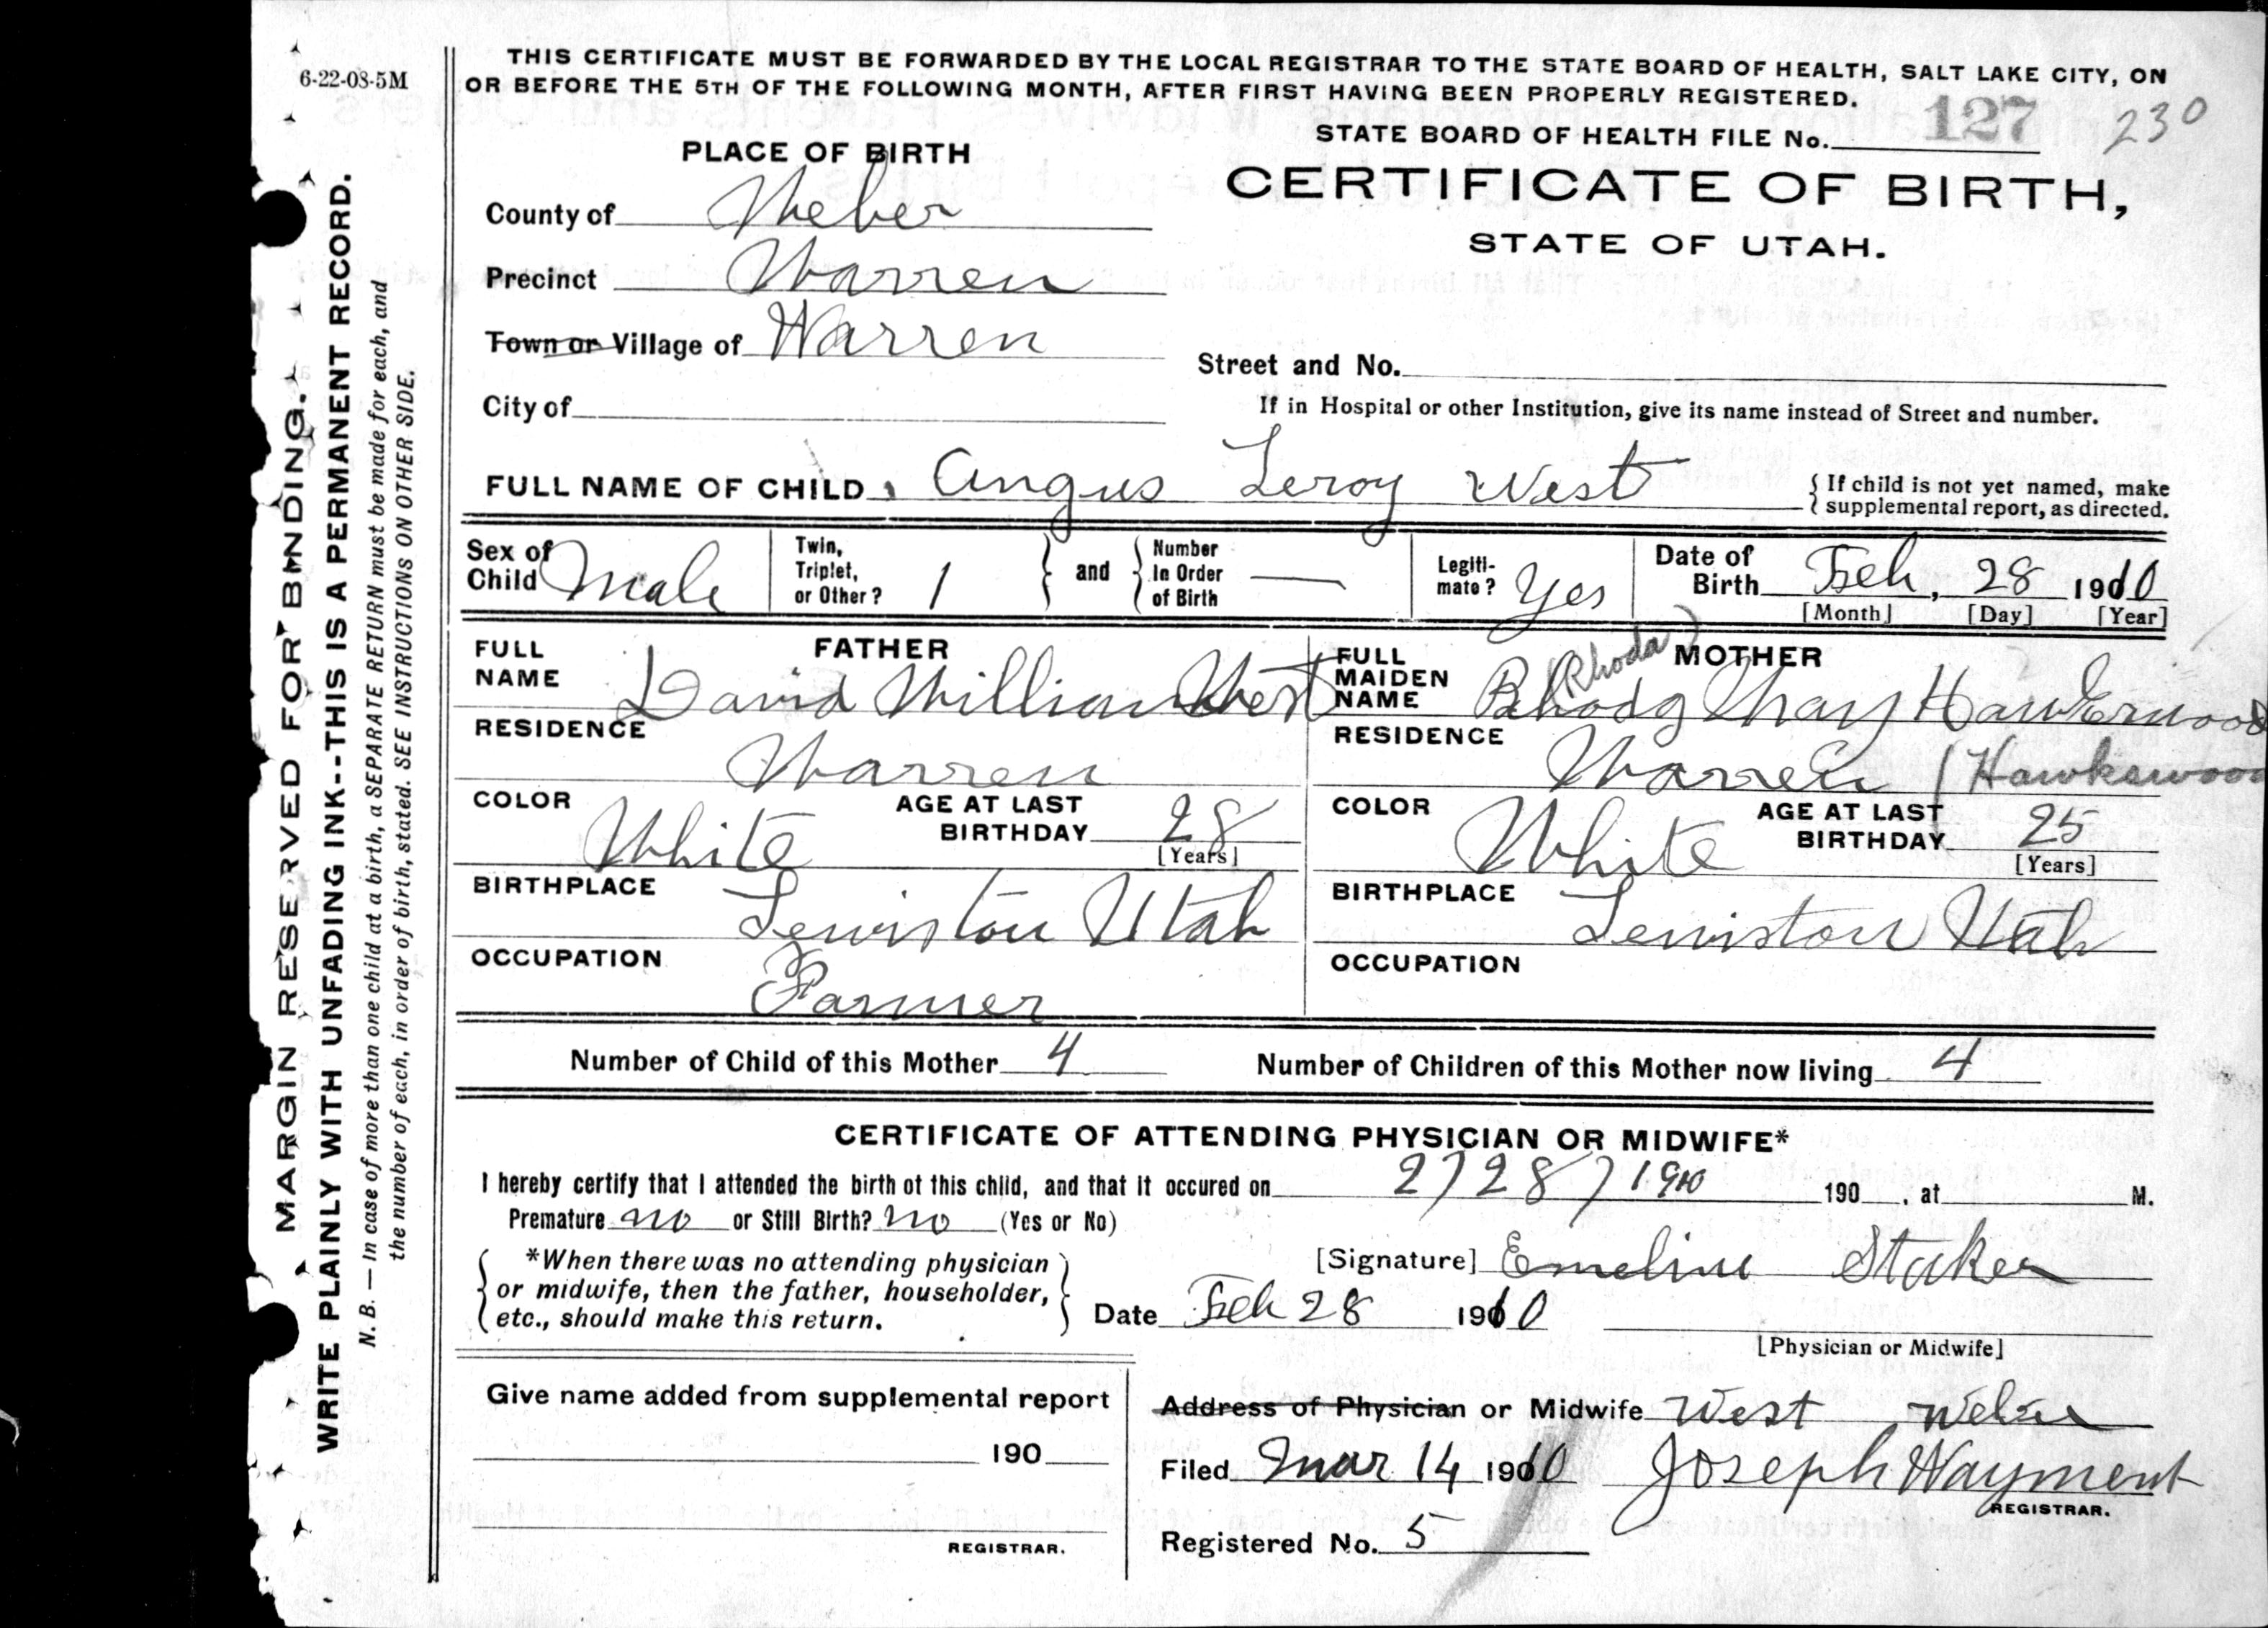 6-22-08-5M
THIS CERTIFICATE MUST BE FORWARDED BY THE LOCAL REGISTRAR TO THE STATE BOARD OF HEALTH, SALT LAKE CITY, ON
OR BEFORE THE 5TH OF THE FOLLOWING MONTH, AFTER FIRST HAVING BEEN PROPERLY REGISTERED.
STATE BOARD OF HEALTH FILE No. 127 230
CERTIFICATE OF BIRTH,
STATE OF UTAH.
PLACE OF BIRTH
County of Weber
Precinct Warren
Town or Village of Warren
City of
Street and No.
If in Hospital or other Institution, give its name instead of Street and number.
FULL NAME OF CHILD Angus Leroy West
{ If child is not yet named, make
supplemental report, as directed.
Sex of Child Male
Twin, Triplet, or Other? 1
} and { Number In Order of Birth —
Legiti-mate? Yes
Date of Birth Feb, 28 1910
[Month] [Day] [Year]
FATHER
FULL NAME David William West
RESIDENCE Warren
COLOR White AGE AT LAST BIRTHDAY 28
[Years]
BIRTHPLACE Lewiston Utah
OCCUPATION Farmer
MOTHER
FULL MAIDEN NAME (Rhoda) Rhoda May Hawkerwood
RESIDENCE Warren (Hawkswood
COLOR White AGE AT LAST BIRTHDAY 25
[Years]
BIRTHPLACE Lewiston Utah
OCCUPATION
Number of Child of this Mother 4 Number of Children of this Mother now living 4
CERTIFICATE OF ATTENDING PHYSICIAN OR MIDWIFE*
I hereby certify that I attended the birth of this child, and that it occured on 2/28/1910 190 , at M.
Premature no or Still Birth? no (Yes or No)
{ *When there was no attending physician
or midwife, then the father, householder,
etc., should make this return. }
[Signature] Emeline Staker
Date Feb 28 1910
[Physician or Midwife]
Give name added from supplemental report
190
REGISTRAR.
Address of Physician or Midwife West Weber
Filed Mar 14 1910 Joseph Wayment
REGISTRAR.
Registered No. 5
MARGIN RESERVED FOR BINDING.
WRITE PLAINLY WITH UNFADING INK--THIS IS A PERMANENT RECORD.
N. B. — In case of more than one child at a birth, a SEPARATE RETURN must be made for each, and
the number of each, in order of birth, stated. SEE INSTRUCTIONS ON OTHER SIDE.